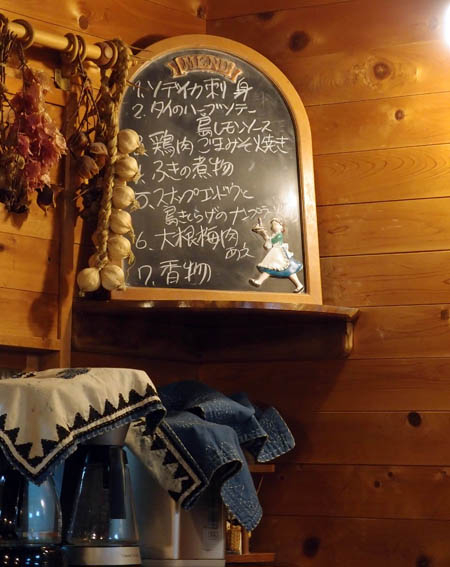 MENU
1. ソデイカ刺身
2. タイのハーブソテー
島レモンソース
3. 鶏肉ごまみそ焼き
4. ふきの煮物
5. スナップエンドウと
島きくらげのナンプラー
6. 大根梅肉
あえ
7. 香物